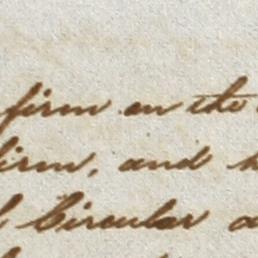 firm on the
firm, and
Circular